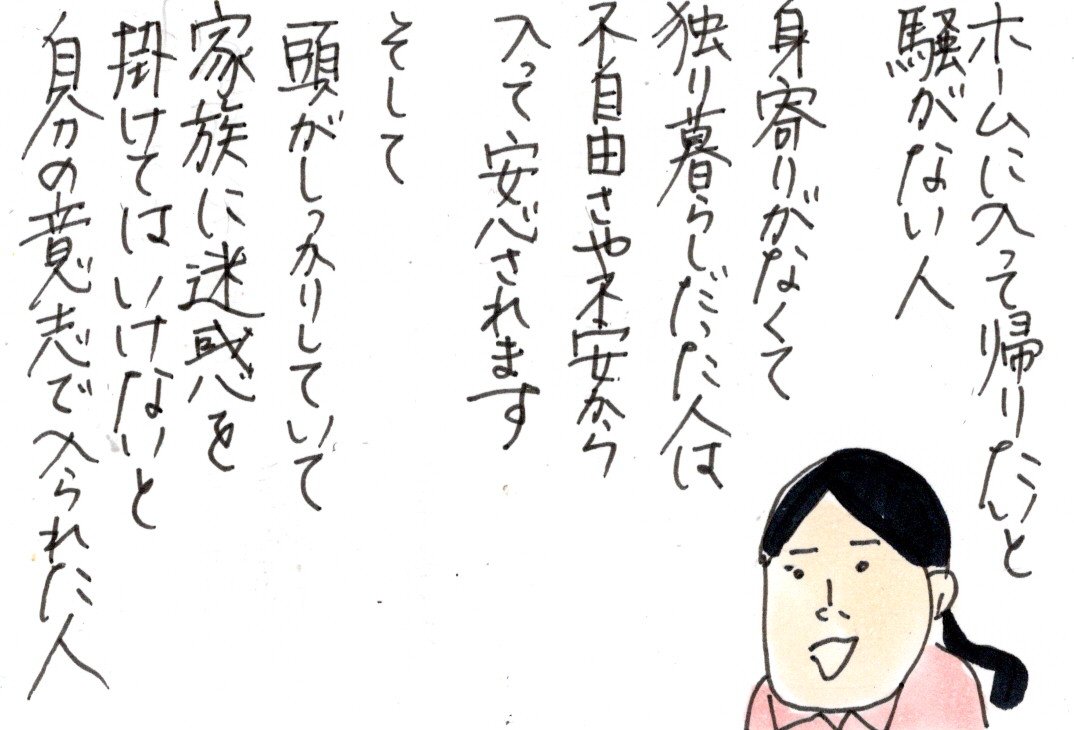 ホームに入って帰りたいと
騒がない人
身寄りがなくて
独り暮らしだった人は
不自由さや不安から
入って安心されます
そして
頭がしっかりしていて
家族に迷惑を
掛けてはいけないと
自分の意志で入られた人